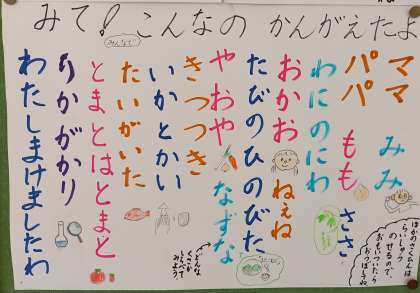 みて! こんなの かんがえたよ
みんなで
ママ みみ
パパ もも ささ
わにのにわ
おかお ねぇね
たびのひのびた
やおや なずな
きつつき
いかとかい
たいがいた
とまとはとまと
りかがかり
わたしまけましたわ
ほかのさくひんは
らいしゅう
のせるので、
おもいついたら